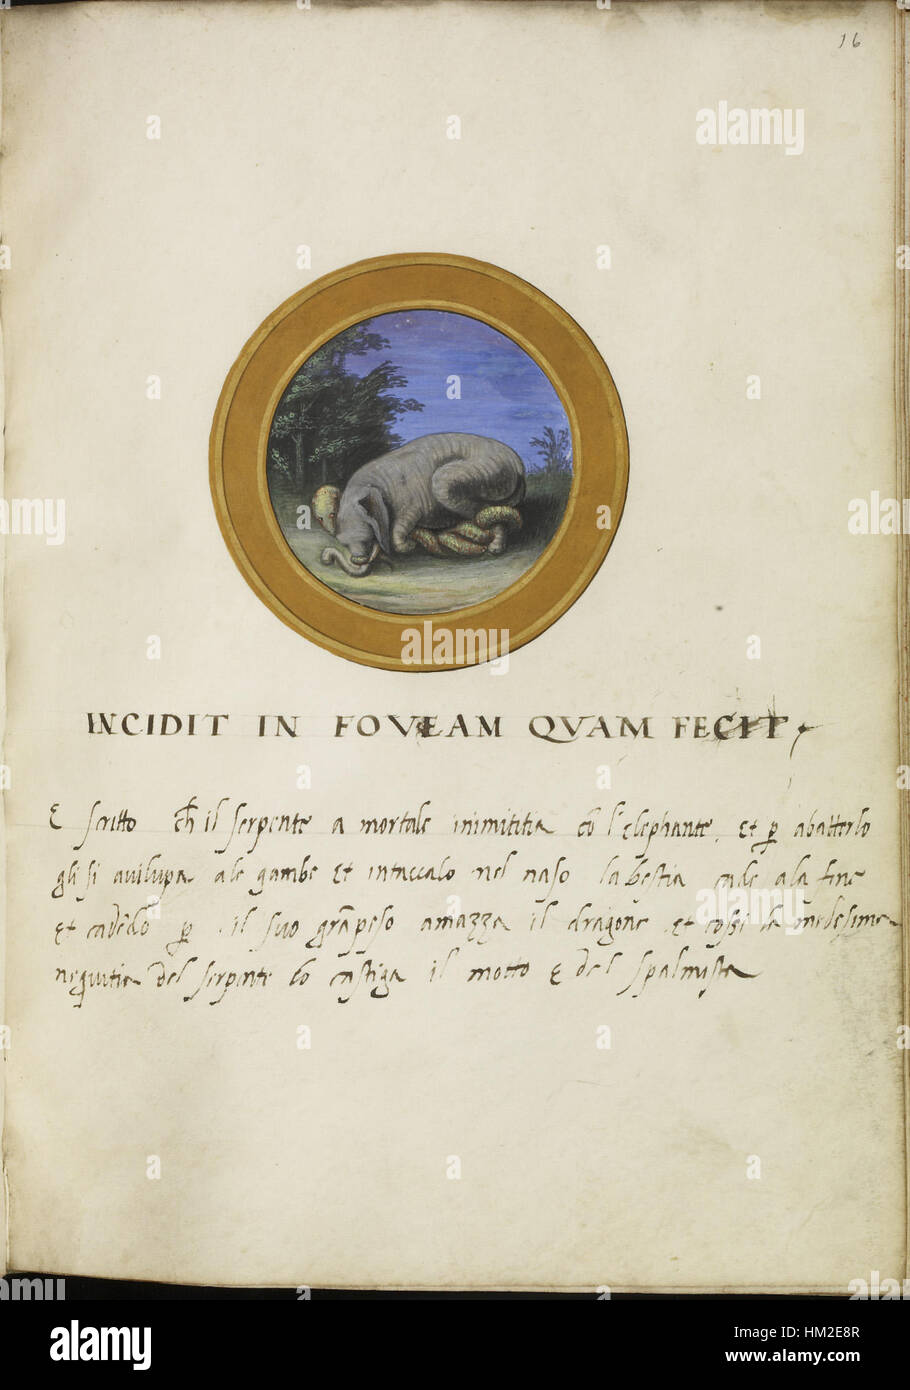 16
INCIDIT IN FOVEAM QVAM FECIT
E scritto ch il serpente a mortale inimititia cō l'elephante, et p abatterlo
gli si avilupa ale gambe et intaccalo nel naso la bestia cade ala fine
et cadēdo p il suo grā peso amazza il dragone et cossi la medesima
nequitia del serpente lo castiga il motto e del spalmista
alamy
alamy
Image ID: HM2E8R
www.alamy.com